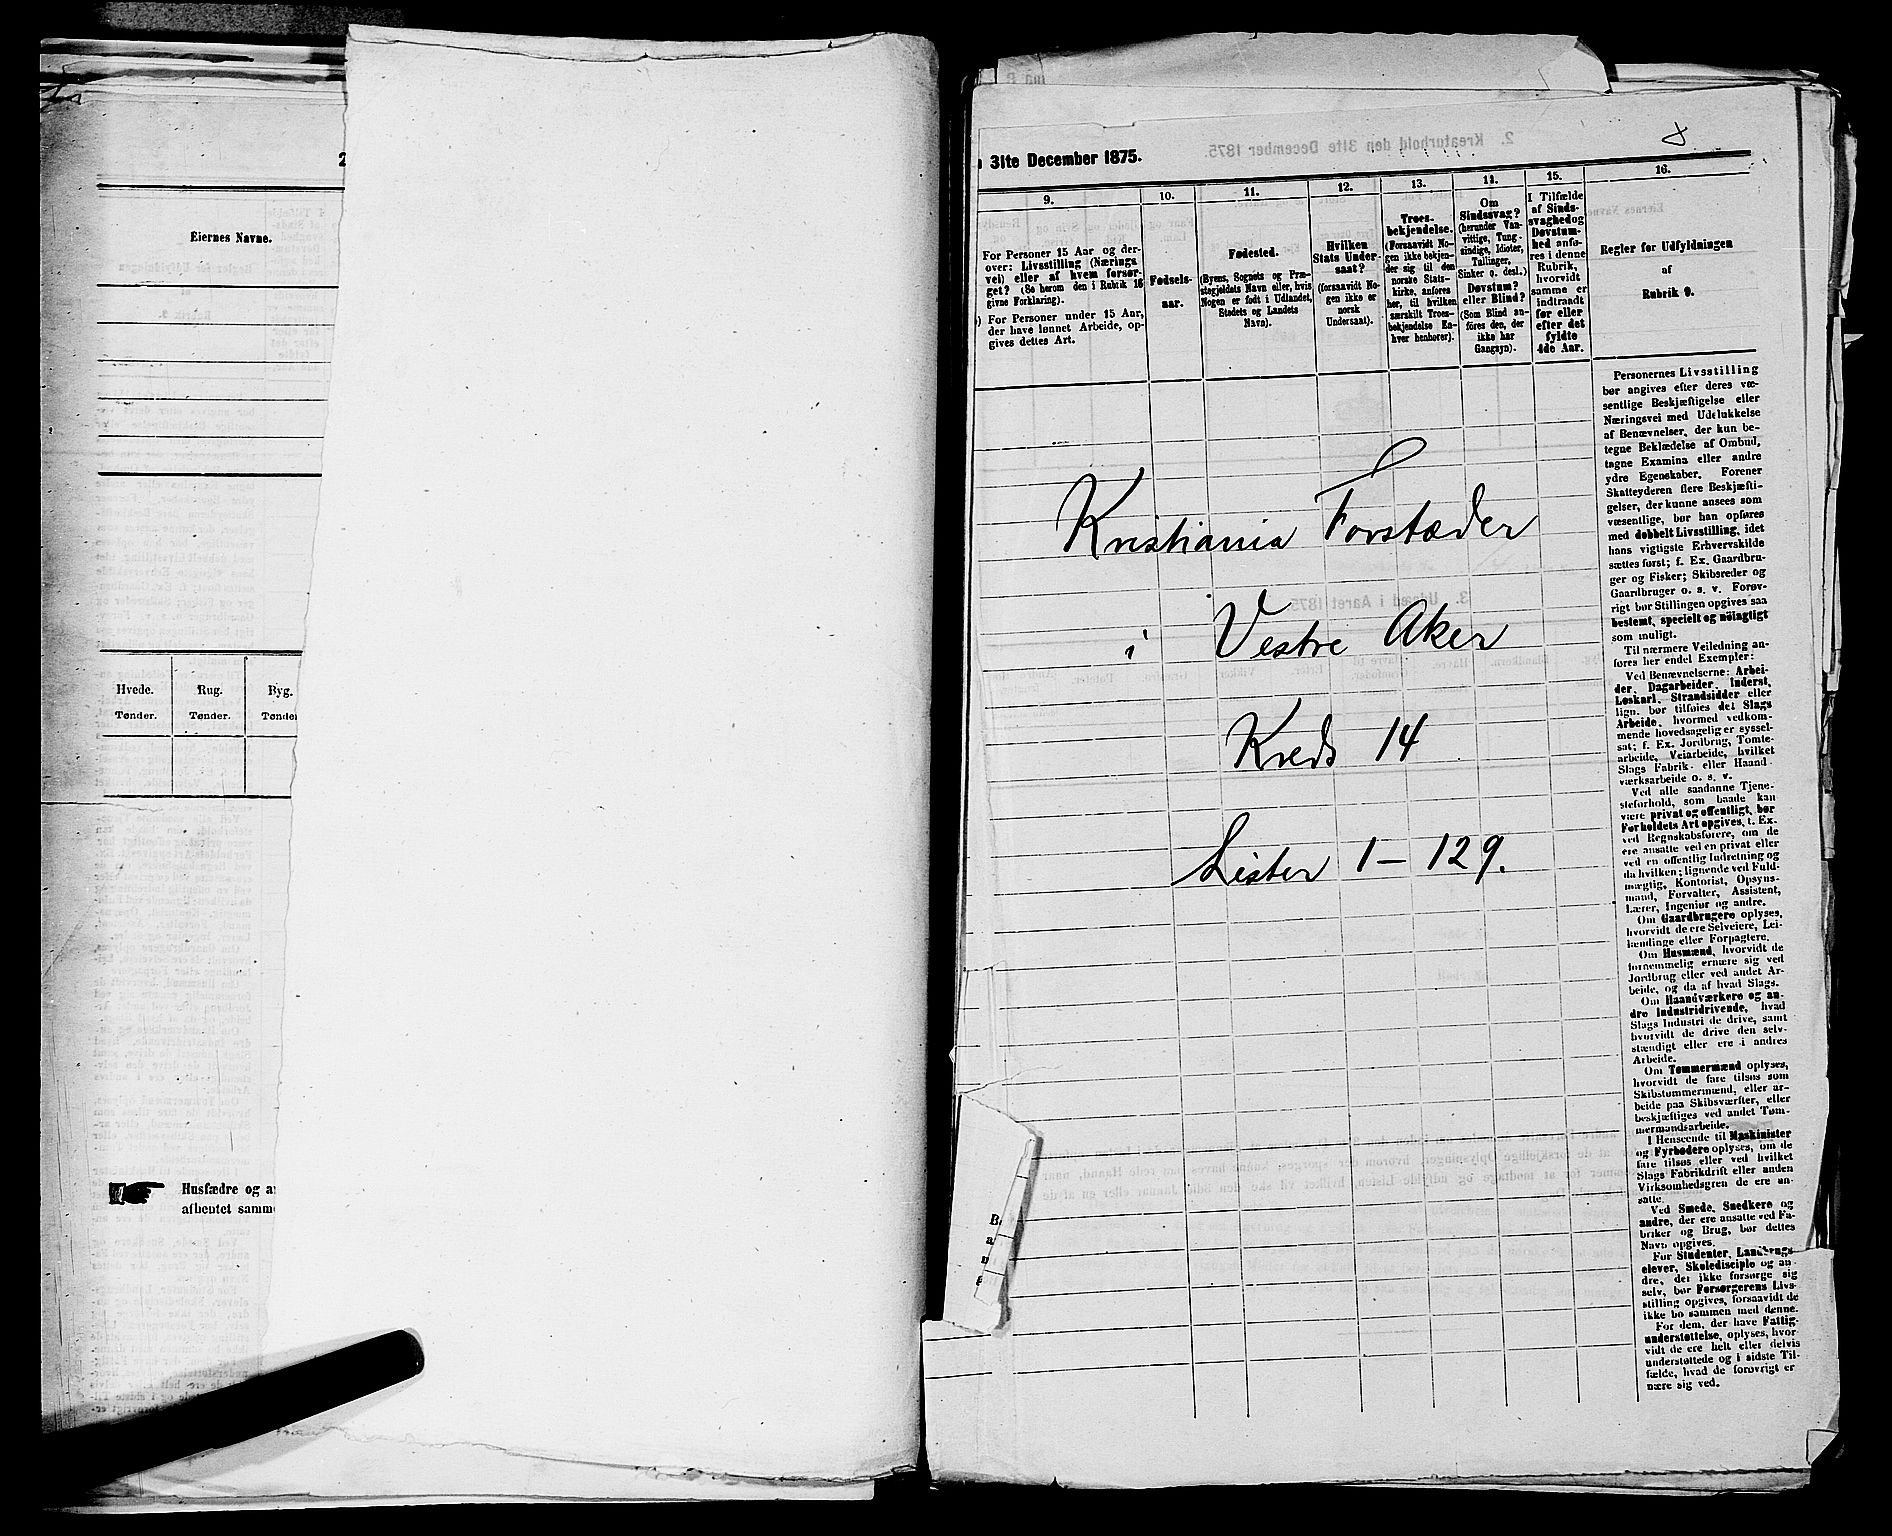 2
Eiernes Navne.
Hvede.
Tønder.
Rug.
Tønder.
Byg.
Tønder
Husfædre og a
afhentet samme
31te December 1875.
9.
For Personer 15 Aar og der-
over: Livsstilling (Nærings
vei) eller af hvem forsør-
get? (Se herom den i Rubrik 16
givne Forklaring).
For Personer under 15 Aar,
der have lønnet Arbeide, op-
gives dettes Art.
10.
Fødsels-
aar.
11.
Fødested.
(Byens, Sognets og Præ-
stegjeldets Navn eller, hvis
Nogen er født i Udlandet,
Stedets og Landets
Navn).
12.
Hvilken
Stats Under-
saat?
(forsaavidt No-
gen ikke er
norsk
Undersaat).
13.
Troes-
bekjendelse.
(Forsaavidt No-
gen ikke bekjen-
der sig til den
norske Stats-
kirke, anføres
her, til hvilken
særskilt Troes-
bekjendelse En-
hver henhører).
14.
Om
Sindssvag?
(herunder Van-
vittige, Tung-
sindige, Idioter,
Tullinger,
Sinker o. desl.)
Døvstum?
eller Blind?
(Som Blind an-
føres den, der
ikke har
Gangsyn).
15.
I Tilfælde
af Sinds-
svaghed og
Døvstum-
hed anfø-
res i denne
Rubrik,
hvorvidt
samme er
indtraadt
før eller
efter det
fyldte
4de Aar.
16.
Regler for Udfyldningen
af
Rubrik 9.
Personernes Livsstilling
bør angives efter deres væ-
sentlige Beskjæftigelse eller
Næringsvei med Udelukkelse
af Benævnelser, der kun be-
tegne Beklædelse af Ombud,
tagne Examina eller andre
ydre Egenskaber. Forener
Skatteyderen flere Beskjæfti-
gelser, der kunne ansees som
væsentlige, bør han opføres
med dobbelt Livsstilling, idet
hans vigtigste Erhvervskilde
sættes først; f. Ex. Gaardbru-
ger og Fisker; Skibsreder og
Gaardbruger o. s. v. Forøv-
rigt bør Stillingen opgives saa
bestemt, specielt og nøiagtigt
som muligt.
Til nærmere Veiledning an-
føres her endel Exempler:
Ved Benævnelserne: Arbei-
der, Dagarbeider, Inderst,
Løskarl, Strandsidder eller
lign. bør tilføies det Slags
Arbeide, hvormed vedkom-
mende hovedsagelig er syssel-
sat; f. Ex. Jordbrug, Tomte-
arbeide, Veiarbeide, hvilket
Slags Fabrik- eller Haand-
værksarbeide o. s. v.
Ved alle saadanne Tjene-
steforhold, som baade kan
være privat og offentligt, bør
Forholdets Art opgives, t. Ex.
ved Regnskabsførere, om de
ere ansatte ved en privat eller
ved en offentlig Indretning og
da hvilken; lignende ved Fuld-
mægtig, Kontorist, Opsyns-
mand, Forvalter, Assistent,
Lærer, Ingeniør og andre.
Om Gaardbrugere oplyses,
hvorvidt de ere Selveiere, Lei-
lændinge eller Forpagtere.
Om Husmænd, hvorvidt de
fornemmelig ernære sig ved
Jordbrug eller ved andet Ar-
beide, og da af hvad Slags.
Om Haandværkere og an-
dre Industridrivende, hvad
Slags Industri de drive, samt
hvorvidt de drive den selv-
stændigt eller ere i andres
Arbeide.
Om Tømmermænd oplyses,
hvorvidt de fare tilsøs som
Skibstømmermænd, eller ar-
beide paa Skibsværfter, eller
beskjæftiges ved andet Tøm-
mermandsarbeide.
I Henseende til Maskinister
og Fyrbødere oplyses, om de
fare tilsøs eller ved hvilket
Slags Fabrikdrift eller anden
Virksomhedsgren de ere an-
satte.
Ved Smede, Snedkere og
andre, der ere ansatte ved Fa-
briker og Brug, bør dettes
Navn opgives.
For Studenter, Landbrugs-
elever, Skoledisciple og an-
dre, der ikke forsørge sig
selv, bør Forsørgerens Livs-
stilling opgives, forsaavidt de
ikke bo sammen med denne.
For dem, der have Fattig-
understøttelse, oplyses, hvor-
vidt de ere helt eller delvis
understøttede og i sidste Til-
fælde, hvad de forøvrigt er
nære sig ved.
Kristiania Forstæder
i Vestre Aker
Kreds 14
Lister 1-129.